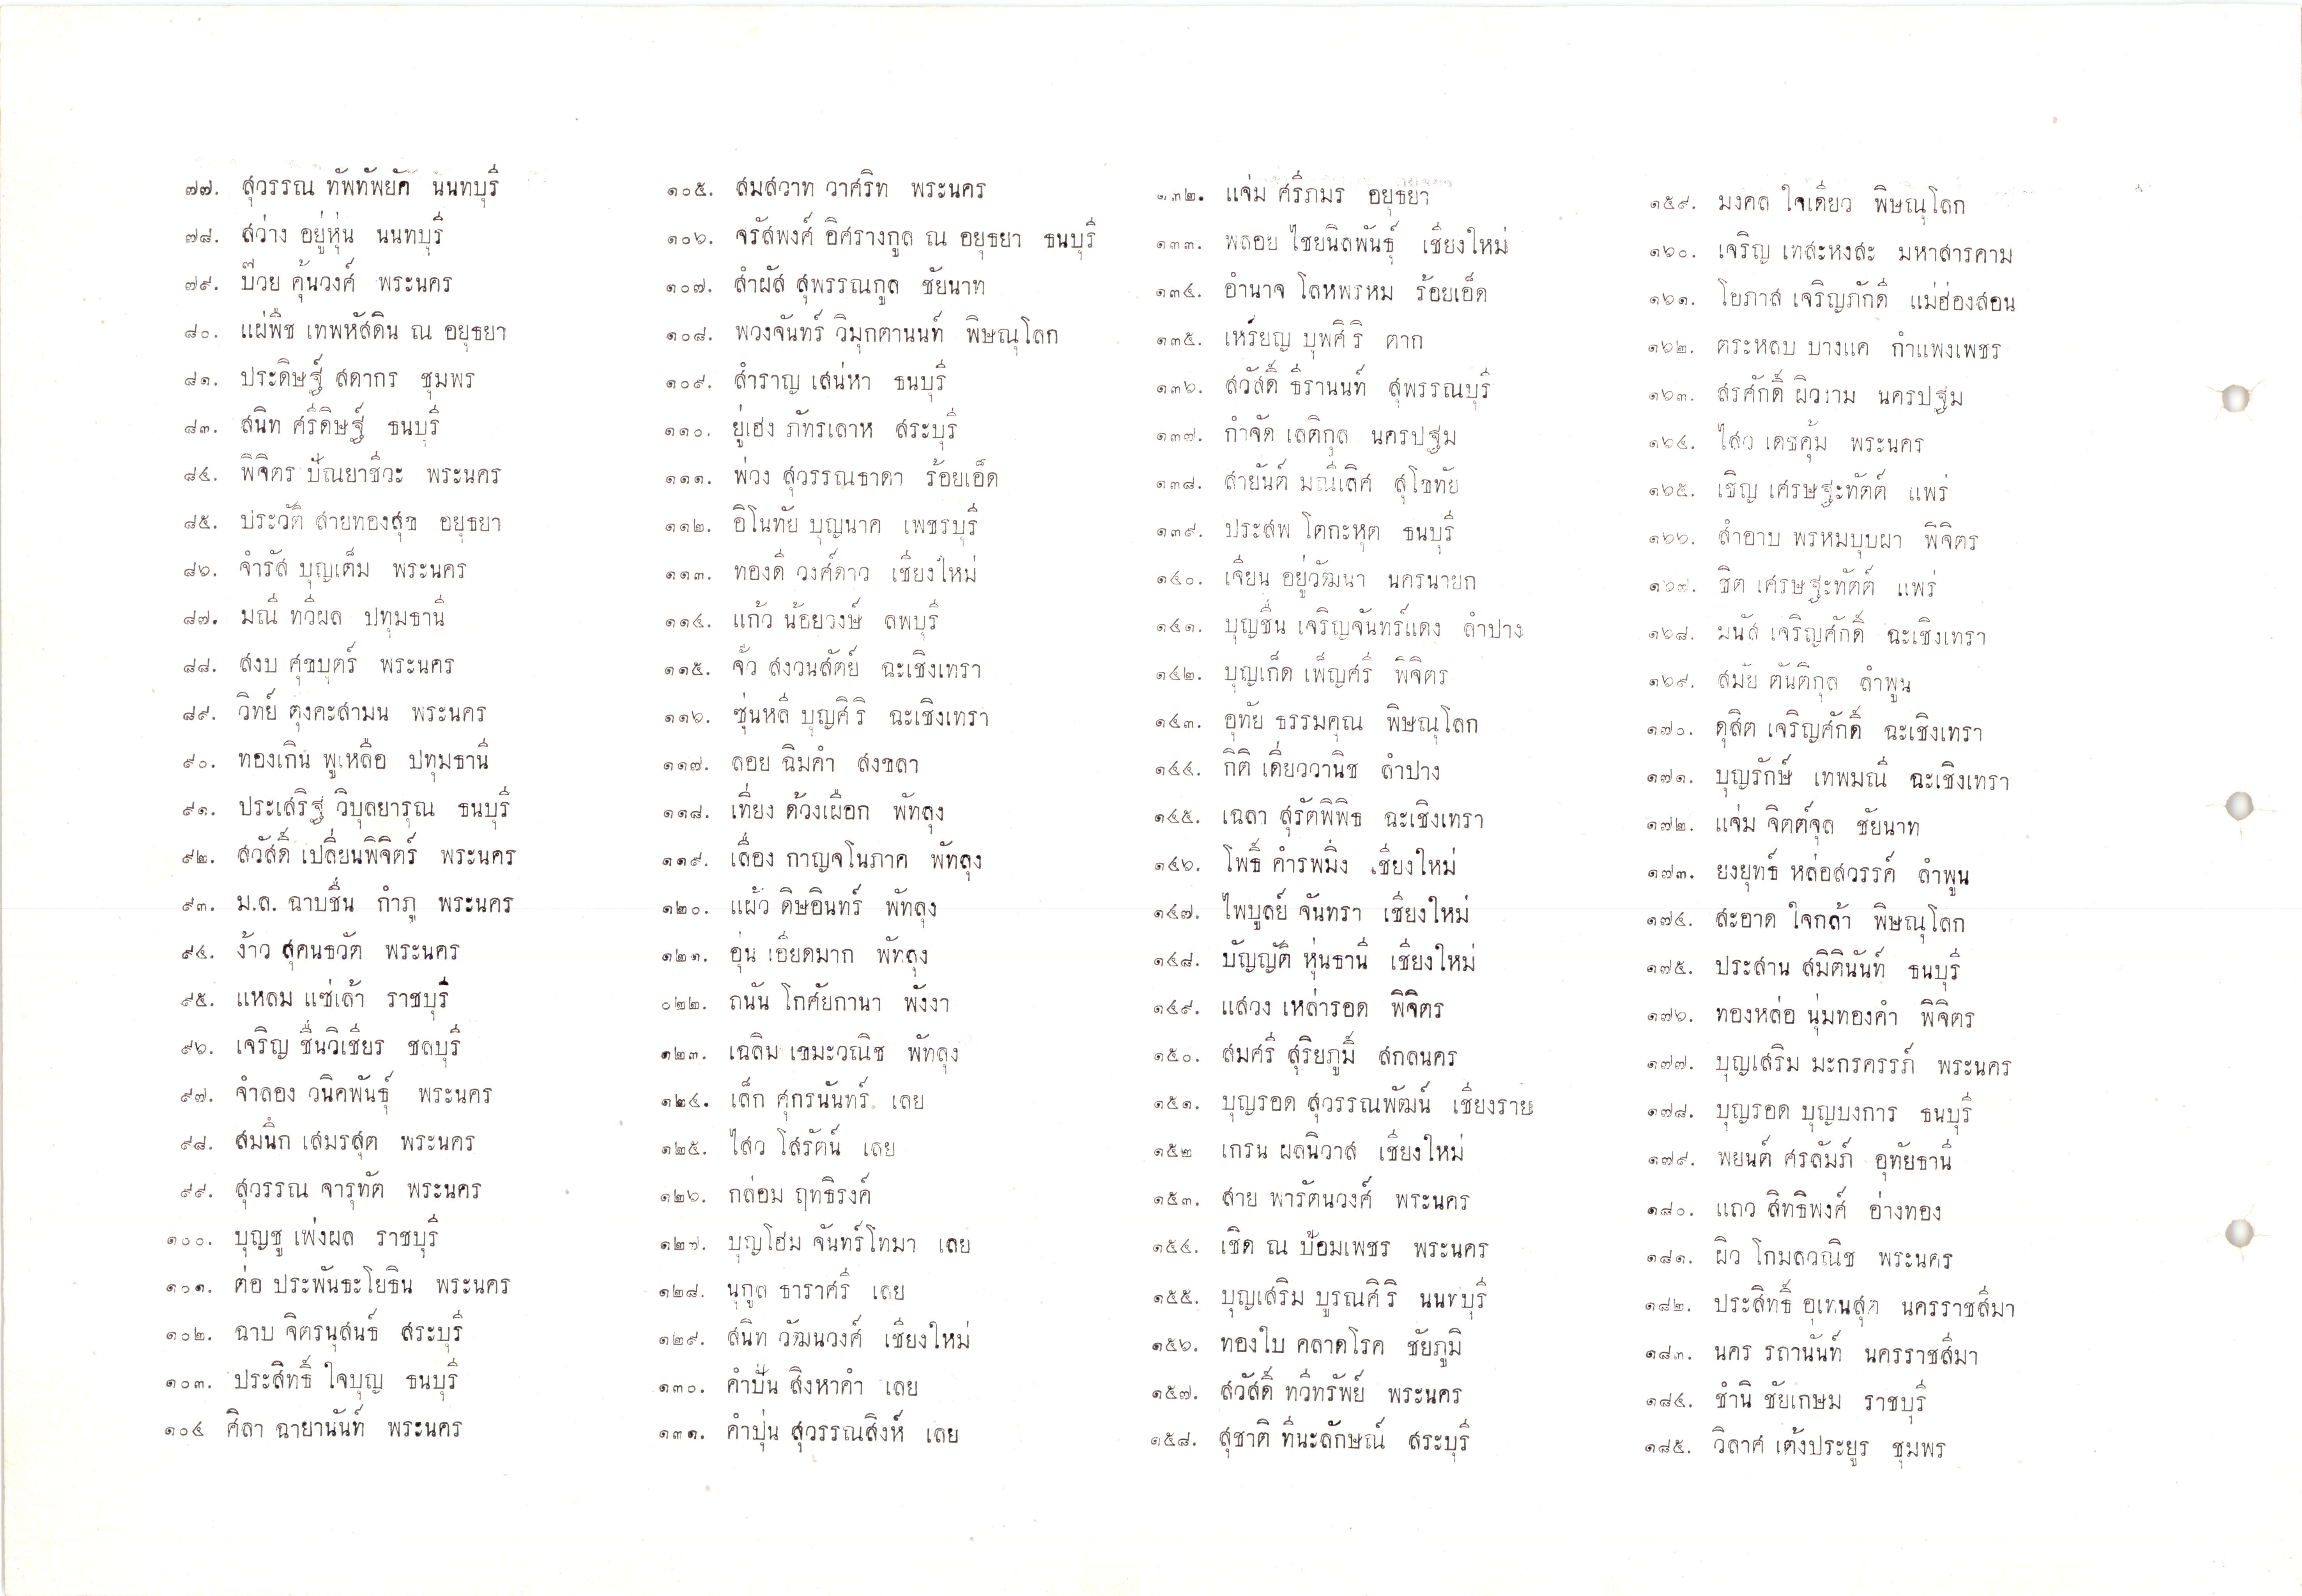 ๗๗. สุวรรณ ทัพทัพยัค นนทบุรี
๗๘. สว่าง อยู่หุ่น นนทบุรี
๗๙. บ๊วย คุ้นวงศ์ พระนคร
๘๐. แผ่พืช เทพหัสดิน ณ อยุธยา
๘๑. ประดิษฐ์ สดากร ชุมพร
๘๓. สนิท ศรีดิษฐ์ ธนบุรี
๘๔. พิจิตร ปัณยาชีวะ พระนคร
๘๕. ประวัติ สายทองสุข อยุธยา
๘๖. จำรัส บุญเต็ม พระนคร
๘๗. มณี ทวีผล ปทุมธานี
๘๘. สงบ ศุขบุตร์ พระนคร
๘๙. วิทย์ ตุงคะสามน พระนคร
๙๐. ทองเกิน พูเหลือ ปทุมธานี
๙๑. ประเสริฐ วิบุลยารุณ ธนบุรี
๙๒. สวัสดิ์ เปลี่ยนพิจิตร์ พระนคร
๙๓. ม.ล. ฉาบชื่น กำภู พระนคร
๙๔. ง้าว สุคนธวัต พระนคร
๙๕. แหลม แซ่เล้า ราชบุรี
๙๖. เจริญ ชื่นวิเชียร ชลบุรี
๙๗. จำลอง วนิคพันธุ์ พระนคร
๙๘. สมนึก เสมรสุต พระนคร
๙๙. สุวรรณ จารุทัต พระนคร
๑๐๐. บุญชู เพ่งผล ราชบุรี
๑๐๑. ต่อ ประพันธะโยธิน พระนคร
๑๐๒. ฉาบ จิตรนุสนธ์ สระบุรี
๑๐๓. ประสิทธิ์ ใจบุญ ธนบุรี
๑๐๔ ศิลา ฉายานันท์ พระนคร
๑๐๕. สมสวาท วาศริท พระนคร
๑๐๖. จรัสพงศ์ อิศรางกูล ณ อยุธยา ธนบุรี
๑๐๗. สำผัส สุพรรณกูล ชัยนาท
๑๐๘. พวงจันทร์ วิมุกตานนท์ พิษณุโลก
๑๐๙. สำราญ เสน่หา ธนบุรี
๑๑๐. ยู่เฮง ภัทรเลาห สระบุรี
๑๑๑. พ่วง สุวรรณธาดา ร้อยเอ็ด
๑๑๒. อิโนทัย บุญนาค เพชรบุรี
๑๑๓. ทองดี วงศ์ดาว เชียงใหม่
๑๑๔. แก้ว น้อยวงษ์ ลพบุรี
๑๑๕. จั๊ว สงวนสัตย์ ฉะเชิงเทรา
๑๑๖. ซุ่นหลี บุญศิริ ฉะเชิงเทรา
๑๑๗. ลอย ฉิมคำ สงขลา
๑๑๘. เที่ยง ด้วงเผือก พัทลุง
๑๑๙. เลื่อง กาญจโนภาค พัทลุง
๑๒๐. แผ้ว ดิษอินทร์ พัทลุง
๑๒๑. อุ่น เอียดมาก พัทลุง
๑๒๒. ถนัน โกศัยกานา พังงา
๑๒๓. เฉลิม เขมะวณิช พัทลุง
๑๒๔. เล็ก ศุกรนันทร์ เลย
๑๒๕. ไสว โสรัตน์ เลย
๑๒๖. กล่อม ฤทธิรงค์
๑๒๗. บุญโฮม จันทร์โทมา เลย
๑๒๘. นุกูล ธาราศรี เลย
๑๒๙. สนิท วัฒนวงศ์ เชียงใหม่
๑๓๐. คำปัน สิงหาคำ เลย
๑๓๑. คำปุ่น สุวรรณสิงห์ เลย
๑๓๒. แจ่ม ศรีภมร อยุธยา
๑๓๓. พลอย ไชยนิลพันธุ์ เชียงใหม่
๑๓๔. อำนาจ โลหพรหม ร้อยเอ็ด
๑๓๕. เหรียญ บุพศิริ ตาก
๑๓๖. สวัสดิ์ ธีรานนท์ สุพรรณบุรี
๑๓๗. กำจัด เลติกุล นครปฐม
๑๓๘. สายันต์ มณีเลิศ สุโขทัย
๑๓๙. ประสพ โตกะหุต ธนบุรี
๑๔๐. เจียน อยู่วัฒนา นครนายก
๑๔๑. บุญชื่น เจริญจันทร์แดง ลำปาง
๑๔๒. บุญเกิด เพ็ญศรี พิจิตร
๑๔๓. อุทัย ธรรมคุณ พิษณุโลก
๑๔๔. กิติ เดี่ยววานิช ลำปาง
๑๔๕. เฉลา สุรัตพิพิธ ฉะเชิงเทรา
๑๔๖. โพธิ์ คำรพมิ่ง เชียงใหม่
๑๔๗. ไพบูลย์ จันทรา เชียงใหม่
๑๔๘. บัญญัติ หุ่นธานี เชียงใหม่
๑๔๙. แสวง เหล่ารอด พิจิตร
๑๕๐. สมศรี สุริยภูมิ์ สกลนคร
๑๕๑. บุญรอด สุวรรณพัฒน์ เชียงราย
๑๕๒ เกรน ผลนิวาส เชียงใหม่
๑๕๓. สาย พารัตนวงศ์ พระนคร
๑๕๔. เชิด ณ ป้อมเพชร พระนคร
๑๕๕. บุญเสริม บูรณศิริ นนทบุรี
๑๕๖. ทองใบ คลาดโรค ชัยภูมิ
๑๕๗. สวัสดิ์ ทวีทรัพย์ พระนคร
๑๕๘. สุชาติ ทีนะลักษณ์ สระบุรี
๑๕๙. มงคล ใจเดียว พิษณุโลก
๑๖๐. เจริญ เทสะหงสะ มหาสารคาม
๑๖๑. โยภาส เจริญภักดี แม่ฮ่องสอน
๑๖๒. ตระหลบ บางแค กำแพงเพชร
๑๖๓. สรศักดิ์ ผิวงาม นครปฐม
๑๖๔. ไสว เดชคุ้ม พระนคร
๑๖๕. เชิญ เศรษฐะทัตต์ แพร่
๑๖๖. สำอาบ พรหมบุบผา พิจิตร
๑๖๗. ชิต เศรษฐะทัตต์ แพร่
๑๖๘. มนัส เจริญศักดิ์ ฉะเชิงเทรา
๑๖๙. สมัย ตันติกุล ลำพูน
๑๗๐. ดุสิต เจริญศักดิ์ ฉะเชิงเทรา
๑๗๑. บุญรักษ์ เทพมณี ฉะเชิงเทรา
๑๗๒. แจ่ม จิตต์จุล ชัยนาท
๑๗๓. ยงยุทธ์ หล่อสวรรค์ ลำพูน
๑๗๔. สะอาด ใจกล้า พิษณุโลก
๑๗๕. ประสาน สมิตินันท์ ธนบุรี
๑๗๖. ทองหล่อ นุ่มทองคำ พิจิตร
๑๗๗. บุญเสริม มะกรครรภ์ พระนคร
๑๗๘. บุญรอด บุญบงการ ธนบุรี
๑๗๙. พยนต์ ศรลัมภ์ อุทัยธานี
๑๘๐. แถว สิทธิพงศ์ อ่างทอง
๑๘๑. ผิว โกมลวณิช พระนคร
๑๘๒. ประสิทธิ์ อุเทนสุต นครราชสีมา
๑๘๓. นคร รถานันท์ นครราชสีมา
๑๘๔. ชำนิ ชัยเกษม ราชบุรี
๑๘๕. วิลาศ เต้งประยูร ชุมพร